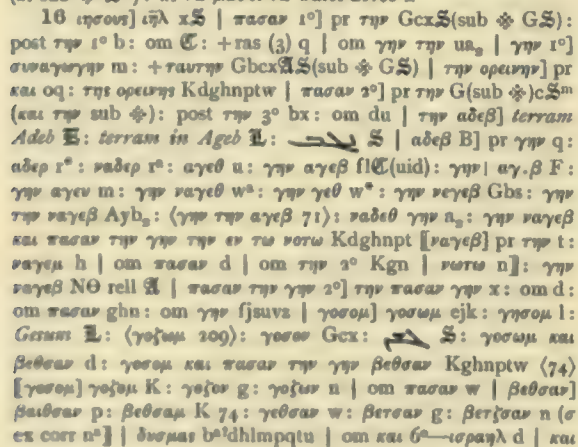 16 ιησους] ιηλ x𝕾 | πασαν 1°] pr την Gcx𝕾(sub ※ G𝕾):
post την 1° b: om ℭ: +ras (3) q | om γην την ua₂ | γην 1°]
συναγωγην m: +ταυτην Gbcx𝕬𝕾(sub ※ G𝕾) | την ορεινην] pr
και oq: της ορεινης Kdghnptw | πασαν 2°] pr την G(sub ※)c𝕾ᵐ
(και την sub ※): post την 3° bx: om du | την αδεβ] terram
Adeb 𝕰: terram in Ageb 𝕷: 𝕾 | αδεβ B] pr γην q:
αδερ r*: ναδερ rᵃ: αγεθ u: γην αγεβ flℭ(uid): γην αγ.β F:
γην αγευ m: γην ναγεθ wᵃ: γην γεθ w*: γην νεγεβ Gbs: γην
την ναγεβ Ayb₂: ⟨γην την αγεβ 71⟩: ναδεθ γην a₂: γην ναγεβ
και πασαν την γην την εν τω νοτω Kdghnpt [[ναγεβ] pr την t:
ναγεμ h | om πασαν d | om την 2° Kgn | νωτω n]]: γην
ναγεβ NΘ rell 𝕬 | πασαν την γην 2°] πασαν γην x: om d:
om πασαν ghn: om γην fjsuvz | γοσομ] γοσωμ ejk: γησομ l:
Gesum 𝕷: ⟨γοζωμ 209⟩: γοσον Gcx: 𝕾: γοσωμ και
βεθσαν d: γοσομ και πασαν την γην βεθσαν Kghnptw ⟨74⟩
[[γοσομ] γοζομ K: γοζον g: γοζων n | om πασαν w | βεθσαν]
βαιθσαν p: βεθσαμ K 74: γεθσαν w: βετσαν g: βερζσαν n (σ
ex corr nᵃ)]] | δυσμας bᵃ'dhlmpqtu | om και 6°—ισραηλ d | και